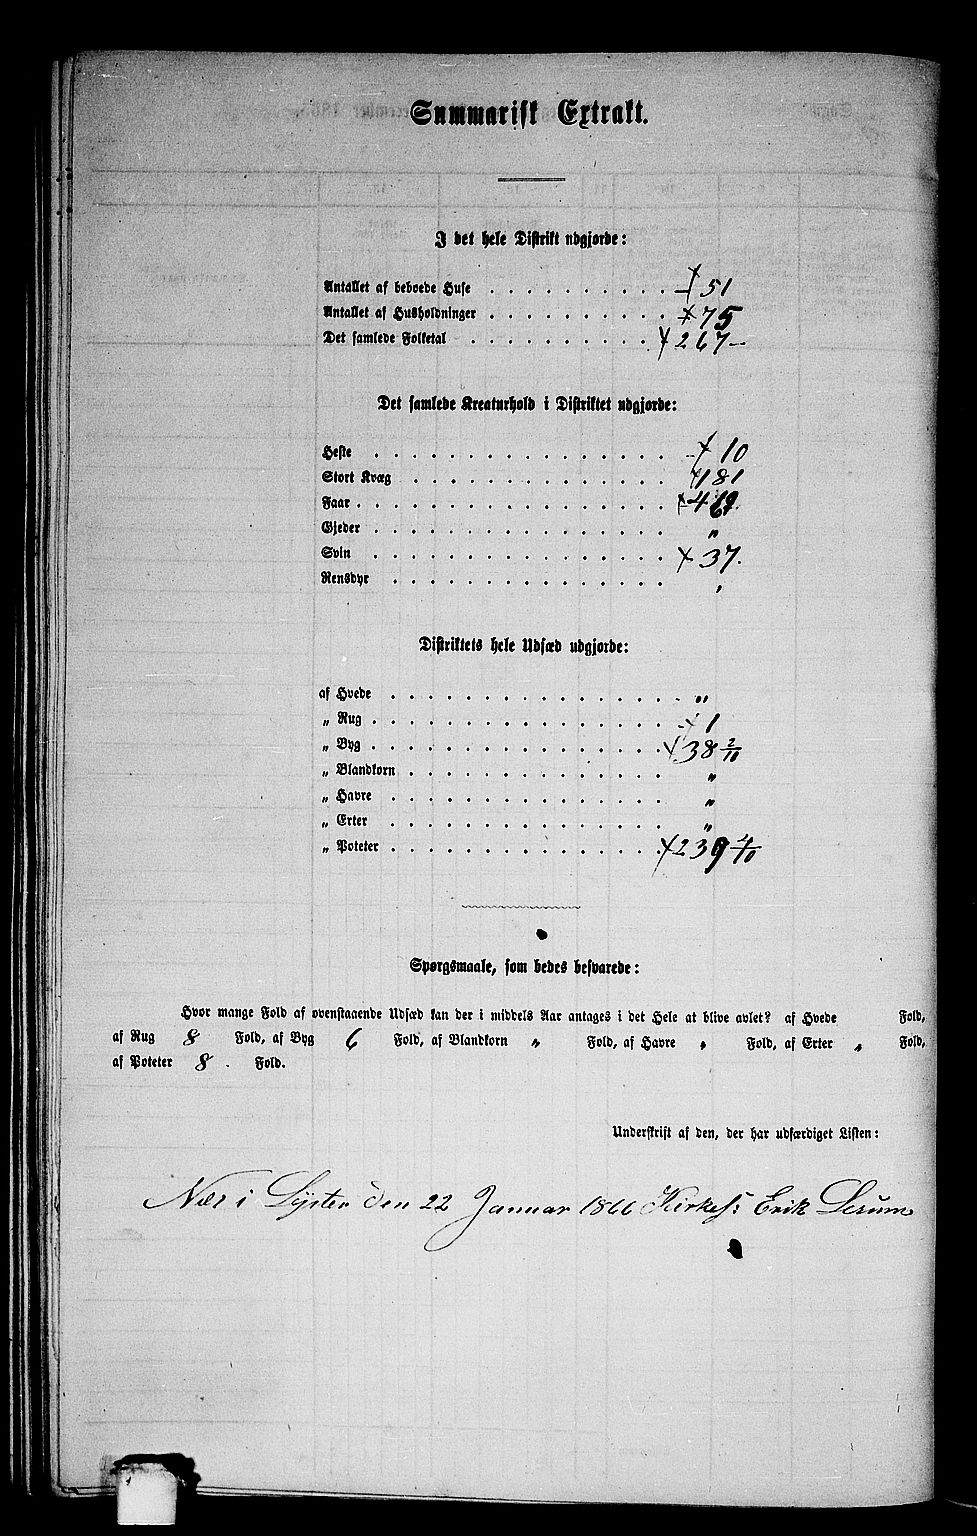 Summarisk Extrakt.
I det hele Distrikt udgjorde:
Antallet af beboede Huse . . . . . . . . . . 51
Antallet af Husholdninger . . . . . . . . . . 75
Det samlede Folketal . . . . . . . . . . 267
Det samlede Kreaturhold i Distriktet udgjorde:
Heste . . . . . . . . . . 10
Stort Kvæg . . . . . . . . . . 181
Faar . . . . . . . . . .
Gjeder . . . . . . . . . . "
Svin . . . . . . . . . . 37.
Rensdyr . . . . . . . . . . "
Distriktets hele Udsæd udgjorde:
af Hvede . . . . . . . . . . "
„ Rug . . . . . . . . . . 1
„ Byg . . . . . . . . . . 38 2/10
„ Blandkorn . . . . . . . . . . "
„ Havre . . . . . . . . . . "
„ Erter . . . . . . . . . . "
„ Poteter . . . . . . . . . . 239 4/10
Spørgsmaale, som bedes besvarede:
Hvor mange Fold af ovenstaaende Udsæd kan der i middels Aar antages i det Hele at blive avlet? af Hvede Fold,
af Rug 8 Fold, af Byg 6 Fold, af Blandkorn " Fold, af Havre " Fold, af Erter " Fold,
af Poteter 8. Fold.
Underskrift af den, der har udfærdiget Listen:
Næs i Lyster den 22 Januar 1866 Kirkes: Erik Lerum